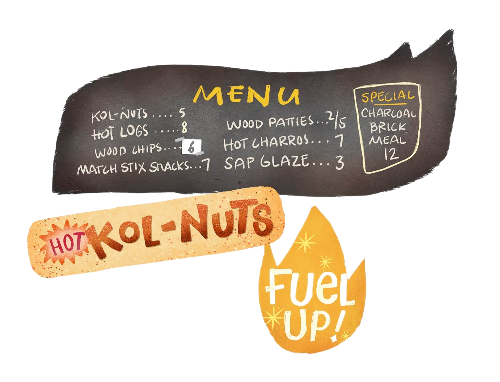 MENU
KOL-NUTS .... 5
HOT LOGS .....8
WOOD CHIPS... 6
MATCH STIX SNACKS...7
WOOD PATTIES...2/5
HOT CHARROS...7
SAP GLAZE...3
SPECIAL
CHARCOAL
BRICK
MEAL
12
HOT KOL-NUTS
FUEL
UP!